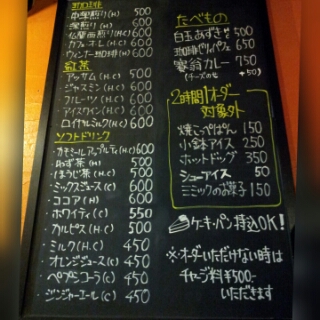 珈琲
中深煎り(H.C) 500
深煎り(H.C) 500
仏蘭西煎り(H.C) 500
カフェ・オ・レ(H.C) 600
ウィンナー珈琲(H.C) 600
紅茶
・アッサム(H.C) 500
・ジャスミン(H.C) 600
・フルーツ(H.C) 600
・アイスワイン(H.C) 600
・ロイヤルミルク(H.C) 600
ソフトドリンク
・カモミールアップルティ(H.C) 600
・ねず茶(H) 500
・ほうじ茶(H.C) 500
・ミックスジュース(C) 600
・ココア(H.C) 600
・ホワイティ(C) 550
・カルピス(H.C) 500
・ミルク(H.C) 450
・オレンジジュース(C) 450
・ペプシコーラ(C) 450
・ジンジャーエール(C) 450
たべもの
白玉あずき 500
珈琲ゼリィパフェ 650
カレー 750
(チーズのせ +50)
2時間1オーダー
対象外
・焼こっぺぱん 150
・小鉢アイス 250
・ホットドッグ 350
・シューアイス 50
・ミミックのお菓子 150
ケーキ・パン持込OK!
※オーダーいただけない時は
チャージ料¥500-
いただきます